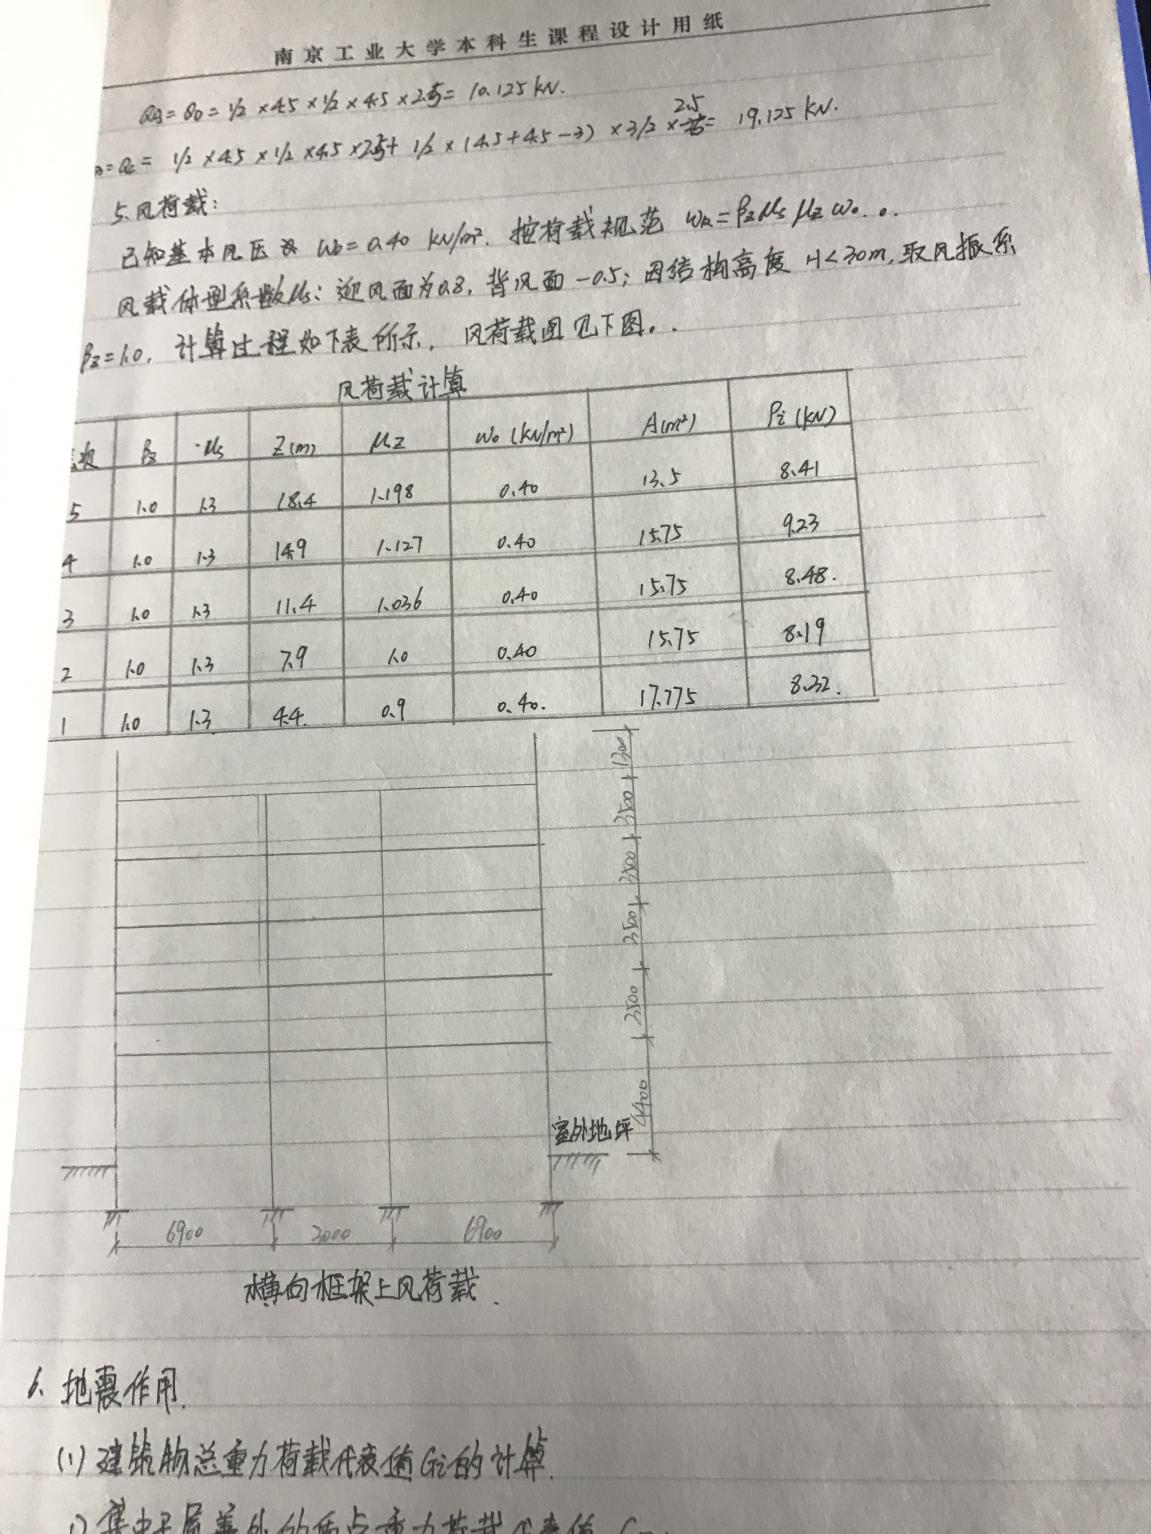 南京工业大学本科生课程设计用纸
QA=QD=1/2×4.5×1/2×4.5×2.5=10.125kN.
=Qc=1/2×4.5×1/2×4.5×2.5+1/2×(4.5+4.5-3)×3/2×2.5=19.125kN.
5.风荷载:
已知基本风压 W0=0.40 kN/m². 按荷载规范 Wk=βzμsμzW0...
风载体型系数μs:迎风面为0.8,背风面-0.5;因结构高度H<30m,取风振系
βz=1.0,计算过程如下表所示,风荷载图见下图。.
风荷载计算
次 βz μs Z(m) μz W0(kN/m²) A(m²) Pi(kN)
5 1.0 1.3 18.4 1.198 0.40 13.5 8.41
4 1.0 1.3 14.9 1.127 0.40 15.75 9.23
3 1.0 1.3 11.4 1.036 0.40 15.75 8.48.
2 1.0 1.3 7.9 1.0 0.40 15.75 8.19
1 1.0 1.3 4.4. 0.9 0.40. 17.775 8.32.
1300
3500
3500
3500
3500
4400
室外地坪
6900 3000 6900
横向框架上风荷载.
6、地震作用.
(1)建筑物总重力荷载代表值Gi的计算.